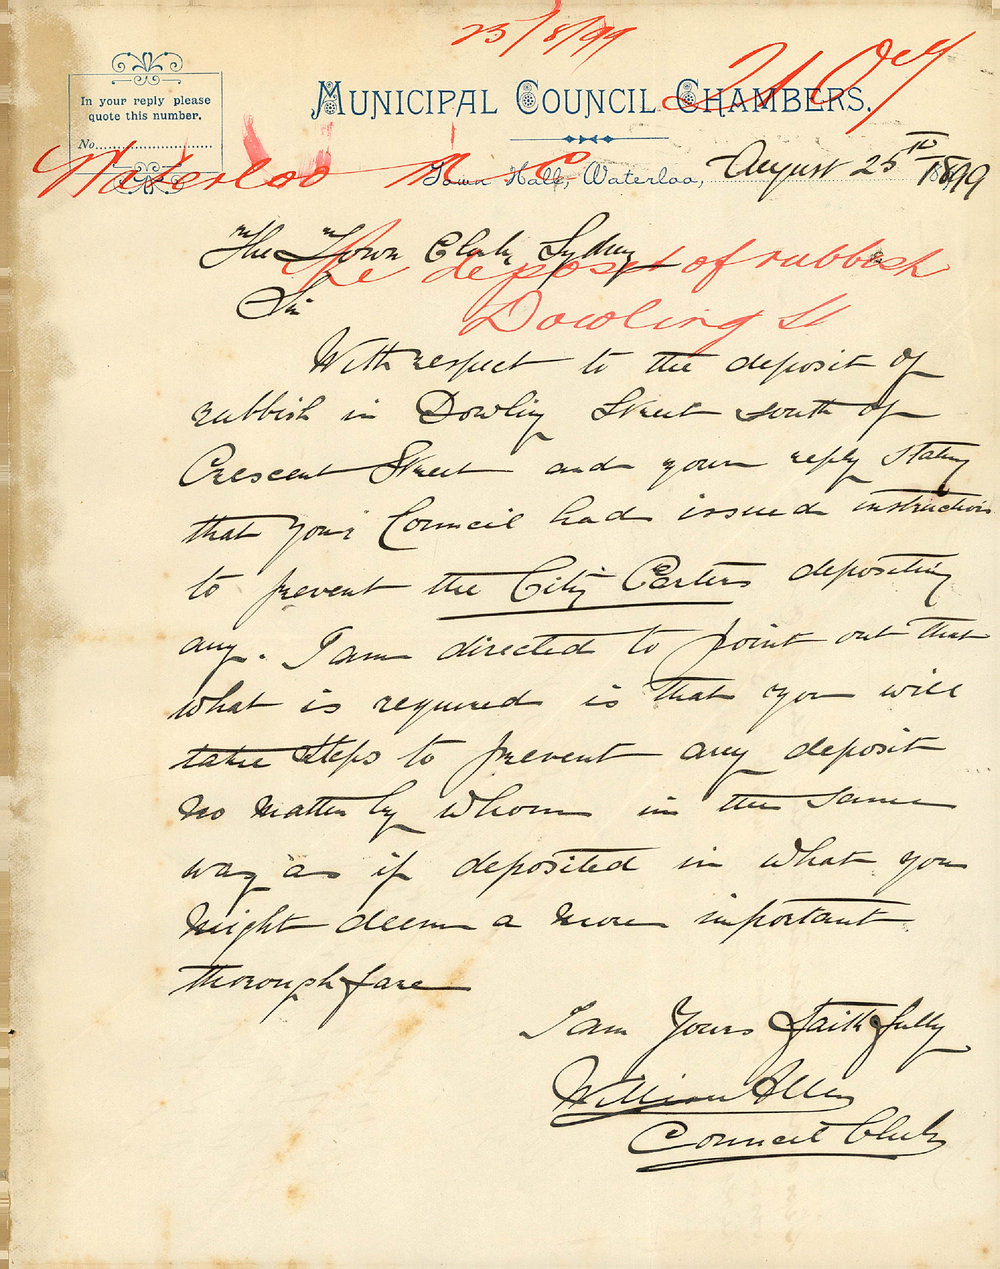 23/8/99
In your reply please
quote this number.
No.
MUNICIPAL COUNCIL CHAMBERS.
Waterloo M. C.
Town Hall, Waterloo, August 25th 1899
The Town Clerk Sydney
Re deposit of rubbish
Dowling St
Sir
With respect to the deposit of
rubbish in Dowling Street south of
Crescent Street and your reply stating
that your Council had issued instructions
to prevent the City Carters depositing
any. I am directed to point out that
what is required is that you will
take steps to prevent any deposit
no matter by whom in the same
way as if deposited in what you
might deem a more important
thoroughfare
I am Yours Faithfully
William Allen
Council Clerk